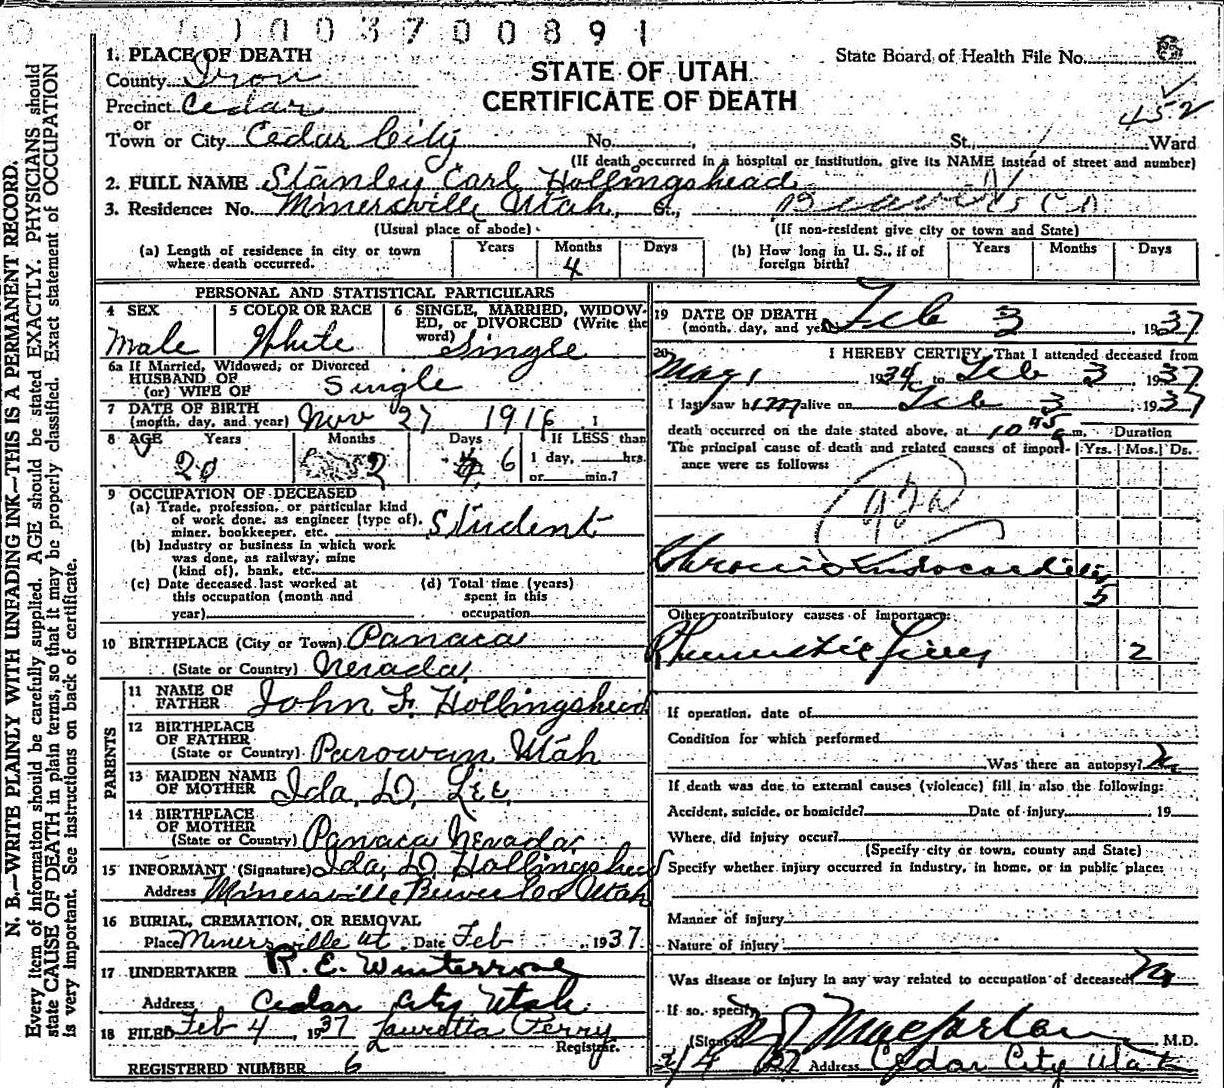 1003700891
1. PLACE OF DEATH
County Iron
Precinct Cedar
or
Town or City Cedar City No. St. Ward
State Board of Health File No.
STATE OF UTAH
CERTIFICATE OF DEATH
452
(If death occurred in a hospital or institution, give its NAME instead of street and number)
2. FULL NAME Stanley Earl Hollingshead
3. Residence: No. Minersville Utah, St., Beaver Co.
(Usual place of abode) (If non-resident give city or town and State)
(a) Length of residence in city or town where death occurred. Years Months 4 Days
(b) How long in U. S., if of foreign birth? Years Months Days
PERSONAL AND STATISTICAL PARTICULARS
4 SEX Male
5 COLOR OR RACE White
6 SINGLE, MARRIED, WIDOWED, or DIVORCED (Write the word) Single
6a If Married, Widowed, or Divorced
HUSBAND OF
(or) WIFE OF Single
7 DATE OF BIRTH
(month, day, and year) Nov 27 1916
8 AGE Years Months Days If LESS than
20 2 6 1 day, hrs.
or min.?
9 OCCUPATION OF DECEASED
(a) Trade, profession, or particular kind
of work done, as engineer (type of),
miner, bookkeeper, etc. Student
(b) Industry or business in which work
was done, as railway, mine
(kind of), bank, etc.
(c) Date deceased last worked at
this occupation (month and
year)
(d) Total time (years)
spent in this
occupation
10 BIRTHPLACE (City or Town) Panaca
(State or Country) Nevada
PARENTS
11 NAME OF
FATHER John F. Hollingshead
12 BIRTHPLACE
OF FATHER
(State or Country) Parowan Utah
13 MAIDEN NAME
OF MOTHER Ida, D, Lee,
14 BIRTHPLACE
OF MOTHER
(State or Country) Panaca Nevada
15 INFORMANT (Signature) Ida, D Hollingshead
Address Minersville Beaver Co Utah
16 BURIAL, CREMATION, OR REMOVAL
Place Minersville ut Date Feb , 1937
17 UNDERTAKER R. E. Winterrose
Address Cedar City Utah
18 FILED Feb 4, 1937 Lauretta Perry
Registrar.
REGISTERED NUMBER 6
19 DATE OF DEATH
(month, day, and year) Feb 3 , 1937
20 I HEREBY CERTIFY, That I attended deceased from
May 1 1934 to Feb 3 , 1937
I last saw him alive on Feb 3 , 1937
death occurred on the date stated above, at 10 45 m. Duration
The principal cause of death and related causes of importance were as follows: Yrs. Mos. Ds.
92a
Chronic Endocarditis
5
Other contributory causes of importance:
Rheumatic fever 2
If operation, date of
Condition for which performed
Was there an autopsy? No
If death was due to external causes (violence) fill in also the following:
Accident, suicide, or homicide? Date of injury , 19
Where did injury occur?
(Specify city or town, county and State)
Specify whether injury occurred in industry, in home, or in public place:
Manner of injury
Nature of injury
Was disease or injury in any way related to occupation of deceased? No
If so, specify
(Signed) Macfarlane M.D.
2/4 37 Address Cedar City Utah
N. B.—WRITE PLAINLY WITH UNFADING INK—THIS IS A PERMANENT RECORD.
Every item of information should be carefully supplied. AGE should be stated EXACTLY. PHYSICIANS should
state CAUSE OF DEATH in plain terms, so that it may be properly classified. Exact statement of OCCUPATION
is very important. See instructions on back of certificate.